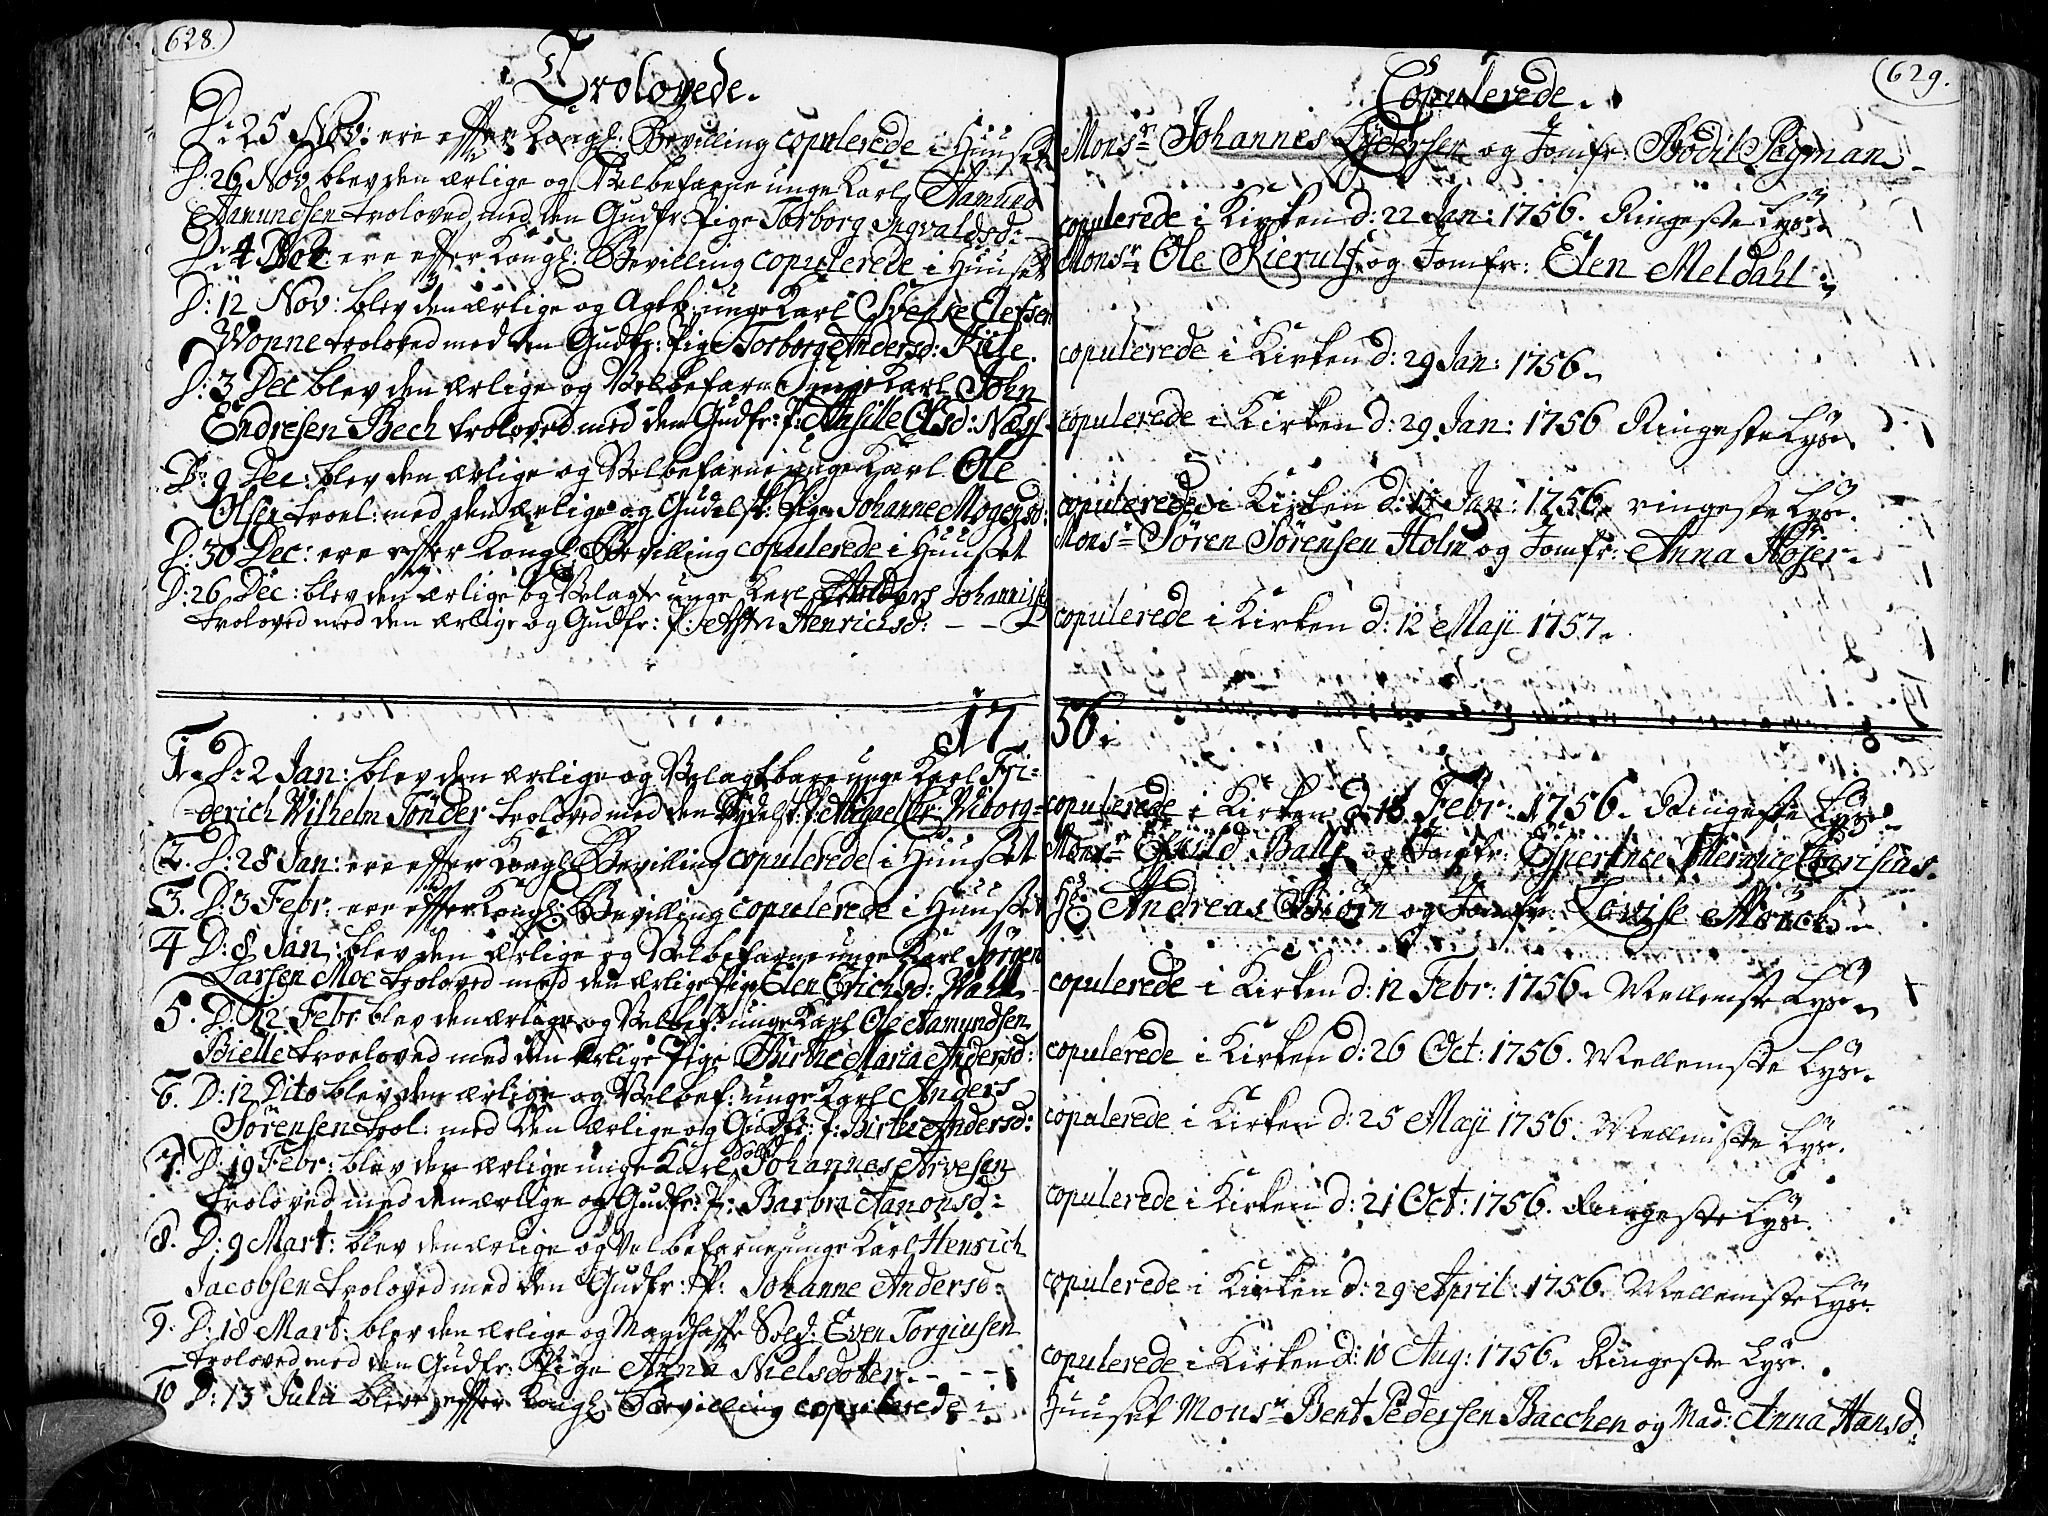 628.
Trolovede.
D: 25 Nov: ere efter Kongl: Bevilling copulerede i Huuset
D: 26 Nov blev den ærlige og Velbefarne unge Karl Aamund
Aanundsen troloved med den Gudfr: Pige Torborg Ingvaldsd:
D: 4 ere efter Kongl: Bevilling copulerede i Huuset
D: 12 Nov: blev den ærlige og Agtb: unge Karl Svenke Elefsen
Wonne troloved med den Gudfr: Pige Torborg Andersd: Kiile.
D: 3 Dec blev den ærlige og Velbefarne unge Karl John
Endresen Bech troloved med den Gudfr: P: Olsd: Næss
D: 9 Dec: blev den ærlige og Velbefarne unge Karl Ole
Olsen troel: med den ærlige og Gudelsk: Pige Johanne Mogensd:
D: 30 Dec: ere efter Kongl: Bevilling copulerede i Huuset
D: 26 Dec: blev den ærlige og Velagte unge Karl Johannissen
troloved med den ærlige og Gudfr: P: Henrichsd: - - -
17
1. D: 2 Jan: blev den ærlige og Velagtbare unge Karl Fri-
-derich Wilhelm Tønder troloved med den Dydelsk: P: Wiborg
2. D: 28 Jan: ere efter Kongl: Bevilling copulerede i Huuset
3. D: 3 Febr: ere efter Kongl: Bevilling copulerede i Huuset
4 D: 8 Jan: blev den ærlige og Velbefarne unge Karl Jørgen
Larsen Moe troloved med den ærlige Pige Elen Erichsd:
5. D: 12 Febr blev den ærlige og Velbef: unge Karl Ole Aamundsen
Bielle troeloved med den ærlige Pige Birthe Maria Andersd:
6. D: 12 Dito blev den ærlige og Velbef: unge Karl Anders
Sørensen trol: med den ærlige og Gudfr: P: Birthe Andersd:
7. D: 19 Febr: blev den ærlige unge Karl Johannes Arvesen
troloved med den ærlige og Gudfr: P: Barbra Aanonsd:
8. D: 9 Mart: blev den ærlige og Velbefarne unge Karl Henrich
Jacobsen troloved med den Gudfr: P: Johanne Andersd:
9. D: 18 Mart: blev den ærlige og Mandhafte Sold: Even Torgiusen
troloved med den Gudfr: Pige Anna Nielsdotter. - - -
10 D: 13 Julii bleve efter Kongl: Bevilling copulerede i
629.
Copulerede.
Monsr Johannes Lydersen og Jomfr: Bodil Pegman
copulerede i Kirken d: 22 Jan: 1756. Ringeste Lys.
Monsr Ole Kierulf og Jomfr: Elen Meldahl
copulerede i Kirken d: 29 Jan: 1756.
copulerede i Kirken d: 29 Jan: 1756 Ringeste Lys.
copulerede i Kirken d: Jan: 1756. ringeste Lys.
Monsr Søren Sørensen Holm og Jomfr: Anna Højer
copulerede i Kirken d: 12 Maji 1757.
56.
copulerede i Kirken d: 18 Febr: 1756. Ringeste Lys.
Monsr Eskild Balle og Jomfr:
Hr: Andreas Biørn og Jomfr: Lovise Münch
copulerede i Kirken d: 12 Febr: 1756. Mellemste Lys.
copulerede i Kirken d: 26 Oct: 1756. Mellemste Lys.
copulerede i Kirken d: 25 Maji 1756. Mellemste Lys.
copulerede i Kirken d: 21 Oct: 1756. Ringeste Lys.
copulerede i Kirken d: 29 April: 1756. Mellemste Lys.
copulerede i Kirken d: 10 Aug: 1756. Ringeste Lys.
Huuset Monsr Bent Pedersen Bacchen og Mad: Anna Hansd: